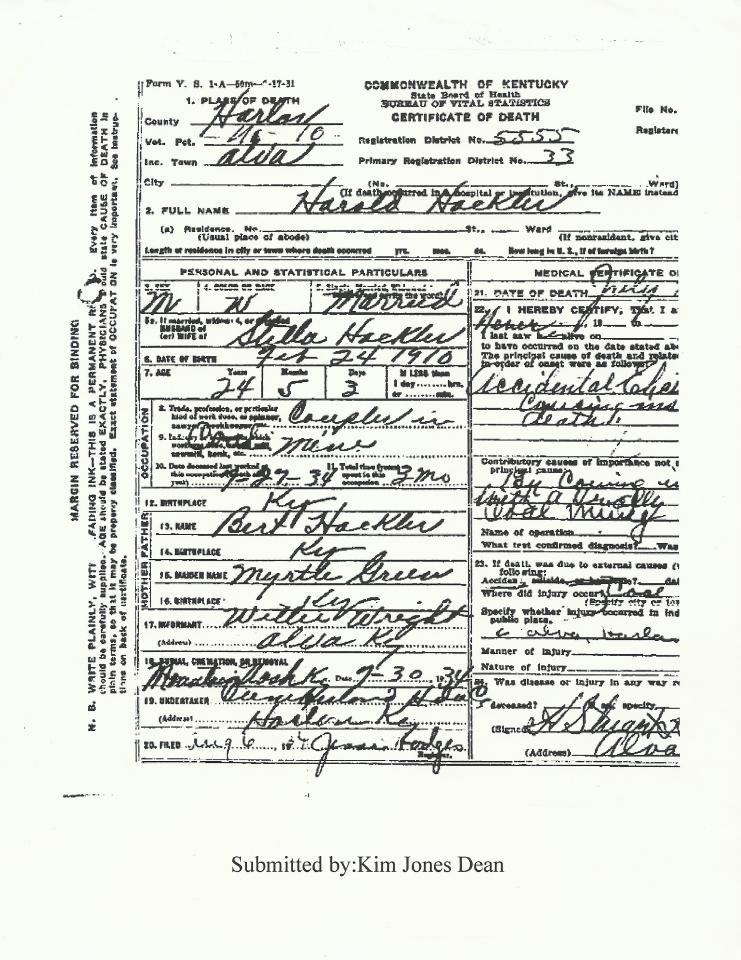 Form V. S. 1-A
COMMONWEALTH OF KENTUCKY
State Board of Health
BUREAU OF VITAL STATISTICS
CERTIFICATE OF DEATH
File No.
Registrar
1. PLACE OF DEATH
County Harlan
Vot. Pct. No- 10
Inc. Town Alva
Registration District No. 5555
Primary Registration District No. 33
City (No. St., Ward)
(If death occurred in a hospital or institution, give its NAME instead
2. FULL NAME Harold Hockler
(a) Residence. No. St., Ward
(Usual place of abode) (If nonresident, give cit
Length of residence in city or town where death occurred yrs. mos. ds. How long in U. S., if of foreign birth?
PERSONAL AND STATISTICAL PARTICULARS
3. SEX 4. COLOR OR RACE 5. Single, Married, Widowed
M W Married
5a. If married, widowed, or divorced
HUSBAND of
(or) WIFE of Stella Hockler
6. DATE OF BIRTH Feb 24 1910
7. AGE Years Months Days If LESS than
24 5 3 1 day hrs.
or min.
OCCUPATION
8. Trade, profession, or particular
kind of work done, as spinner,
sawyer, bookkeeper Coupler in
9. Industry Mine
sawmill, bank, etc.
10. Date deceased last worked at
this occupation 7-27-34
11. Total time (years)
spent in this
occupation 3 mo
12. BIRTHPLACE Ky
FATHER
13. NAME Bert Hockler
14. BIRTHPLACE Ky
MOTHER
15. MAIDEN NAME Myrtle Green
16. BIRTHPLACE Ky
17. INFORMANT Willie Wright
(Address) Alva Ky
18. BURIAL, CREMATION, OR REMOVAL
Date 7-30 1934
19. UNDERTAKER
(Address) Harlan Ky
20. FILED Aug 6
Registrar.
MEDICAL CERTIFICATE O
21. DATE OF DEATH July
22. I HEREBY CERTIFY, That I a
I last saw h alive on
to have occurred on the date stated ab
The principal cause of death and relate
in order of onset were as follows:
Accidental
Causing
death
Contributory causes of importance not
principal cause:
By Coming in
with a Trolly
Coal Mining
Name of operation
What test confirmed diagnosis? Was
23. If death was due to external causes (
following:
Accident, suicide, or homicide? da
Where did injury occur? Coal
(Specify city or to
Specify whether injury occurred in ind
public place.
Alva, Harlan
Manner of injury
Nature of injury
24. Was disease or injury in any way r
deceased? specify
(Signed)
(Address) Alva
MARGIN RESERVED FOR BINDING
N. B. WRITE PLAINLY, WITH FADING INK—THIS IS A PERMANENT Every item of information
should be carefully supplied. AGE should be stated EXACTLY, PHYSICIANS should state CAUSE OF DEATH in
plain terms, so that it may be properly classified. Exact statement of OCCUPATION is very important. See instruc-
tions on back of certificate.
Submitted by:Kim Jones Dean